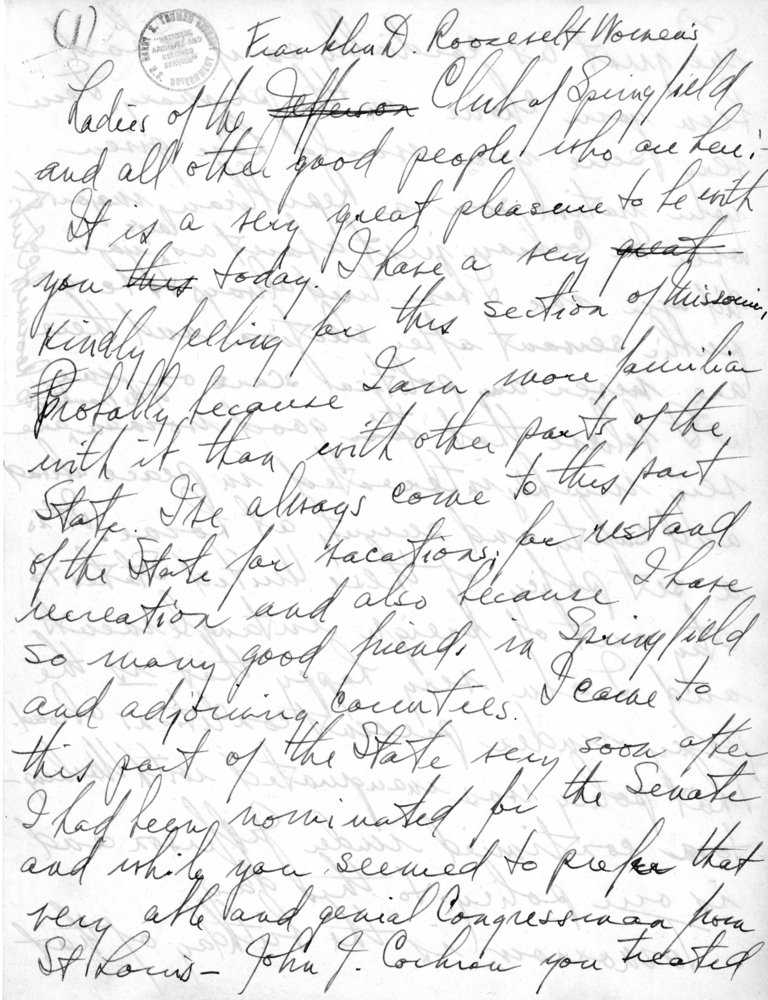 (1)
HARRY S. TRUMAN LIBRARY
NATIONAL
ARCHIVES AND
RECORDS
SERVICE
U.S. GOVERNMENT
Franklin D. Roosevelt Women's
Ladies of the Jefferson Club of Springfield
and all other good people who are here:-
It is a very great pleasure to be with
you this today. I have a very great
kindly feeling for this section of Missouri,
Probally because I am more familiar
with it than with other parts of the
State. I've always come to this part
of the State for vacations, for rest and
recreation and also because I have
so many good friends in Springfield
and adjoining counties. I came to
this part of the State very soon after
I had been nominated for the Senate
and while you seemed to prefer that
very able and genial Congressman from
St Louis - John J. Cochran you treated